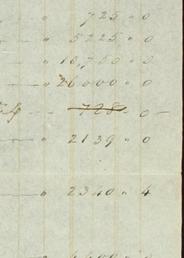 — " 725 " 0
— " 5225 " 0
— " 10,750 " 0
— " 26000 " 0
— 728 0 —
— " 2139 " 0
— " 2340 " 4